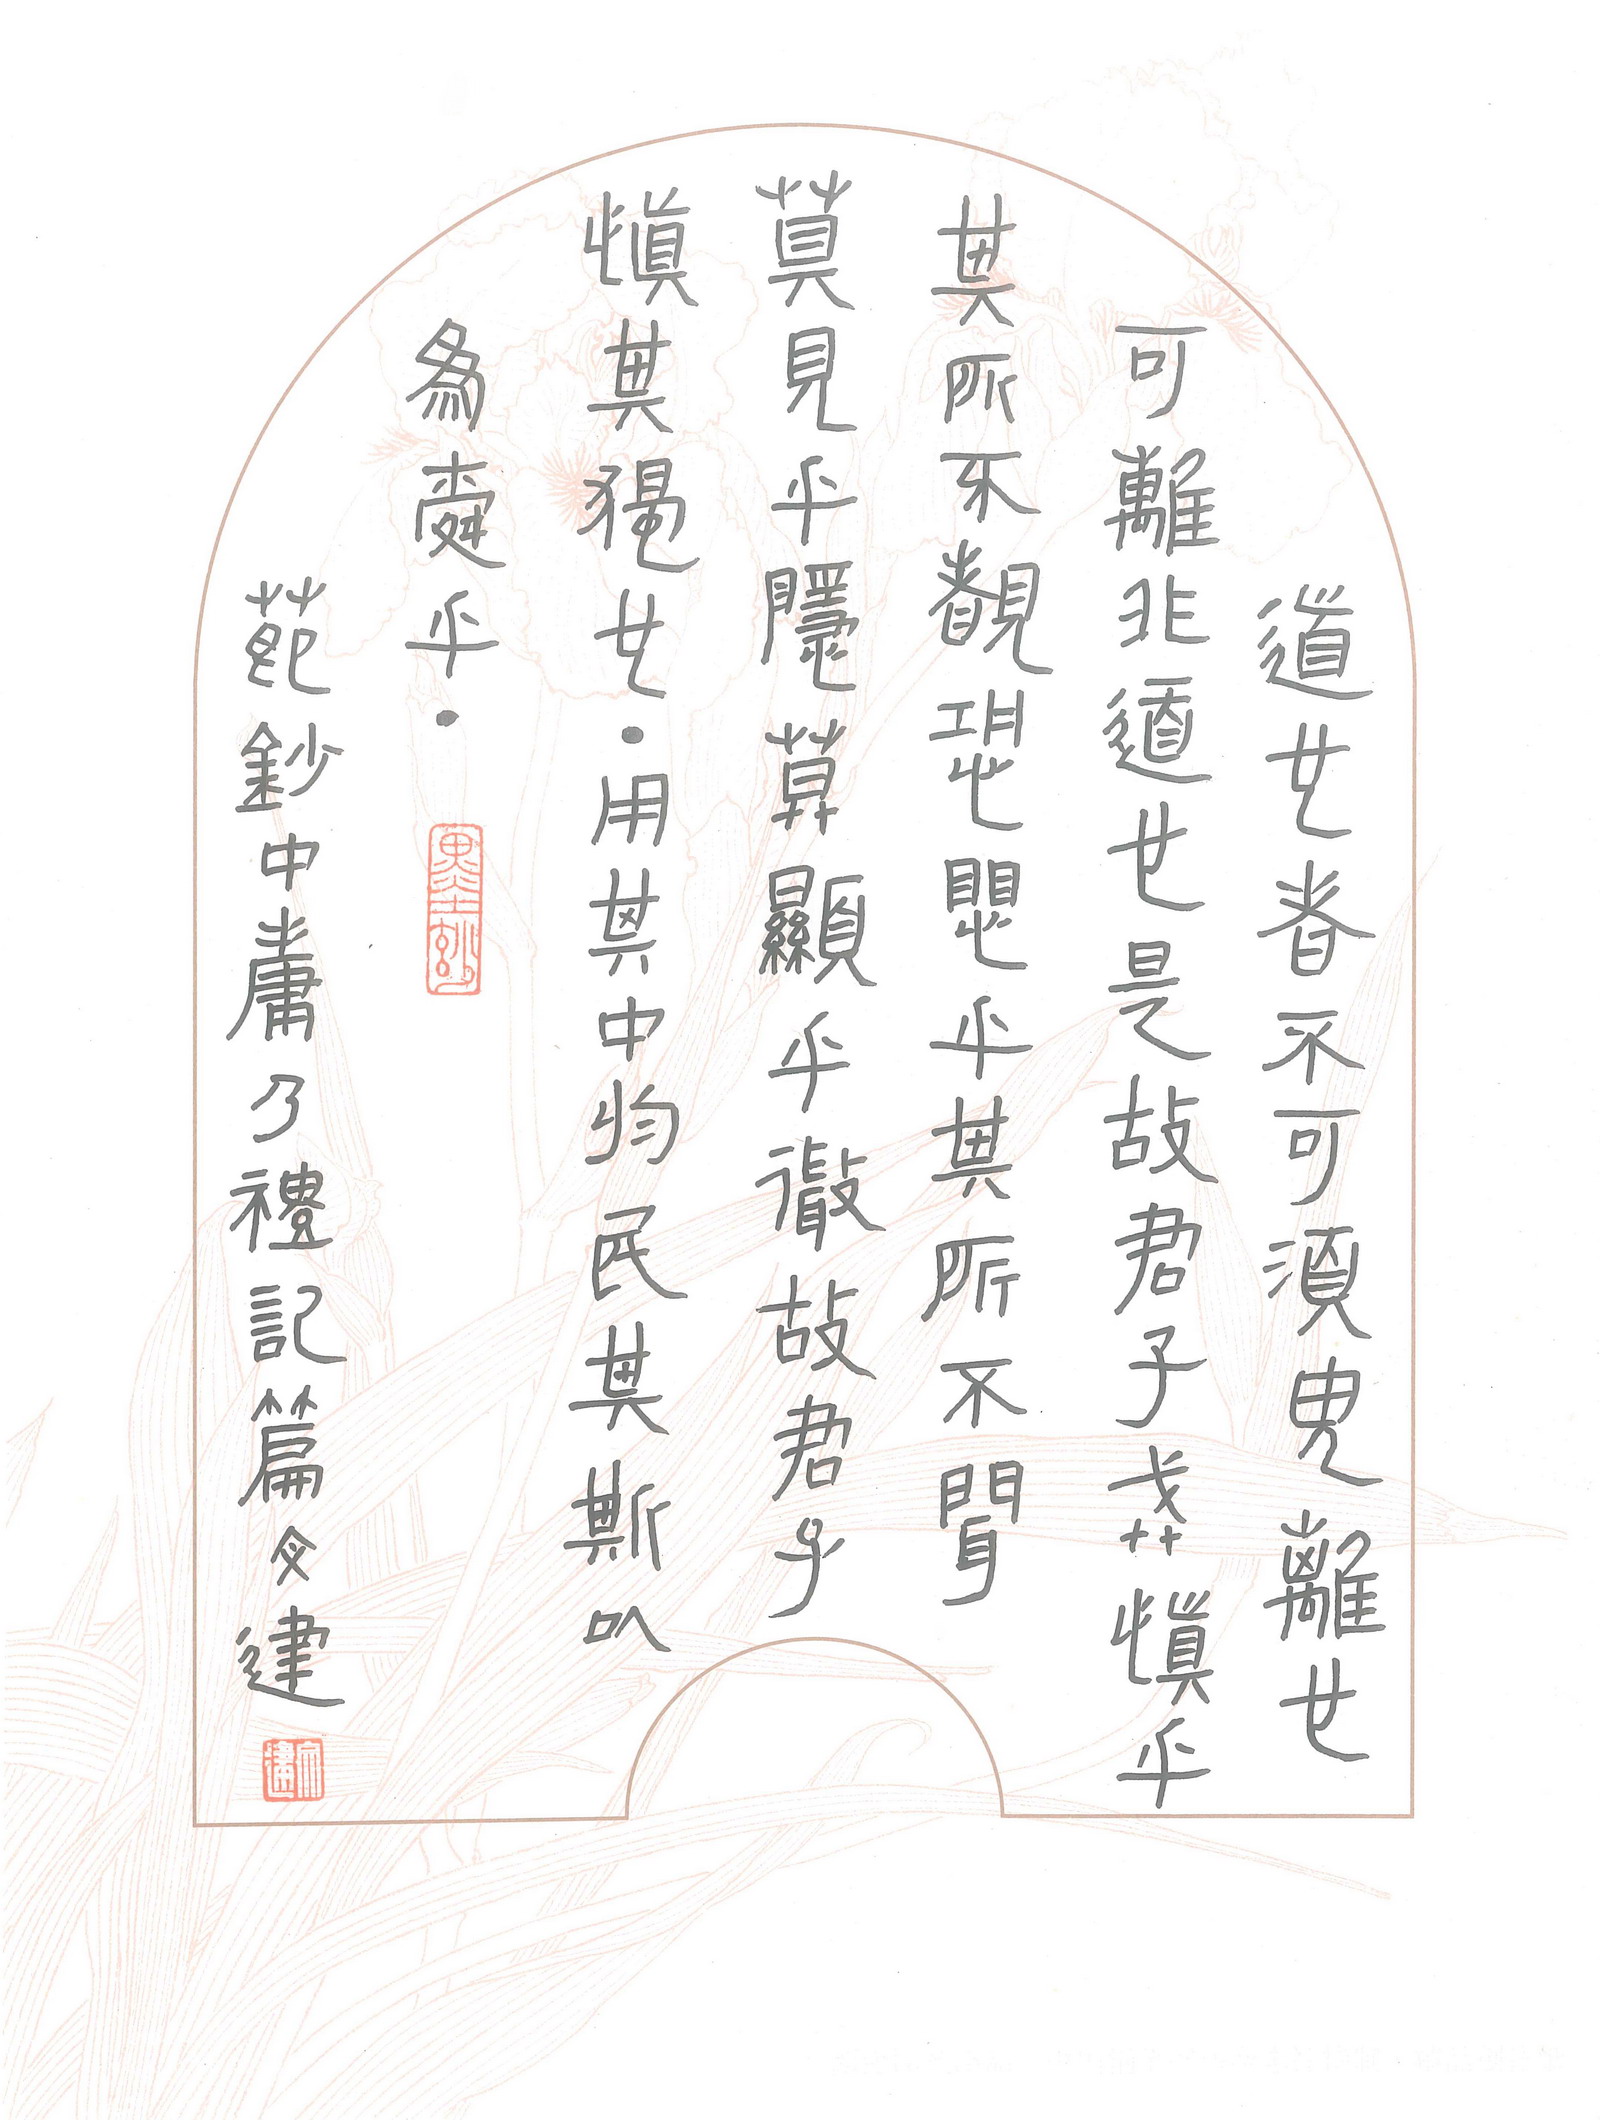 道也者不可須臾離也
可離非道也是故君子戒慎乎
其所不睹恐懼乎其所不聞
莫見乎隱莫顯乎微故君子
慎其獨也・用其中於民其斯以
為舜乎・
範鈔中庸乃禮記篇文建
墨妙
文建